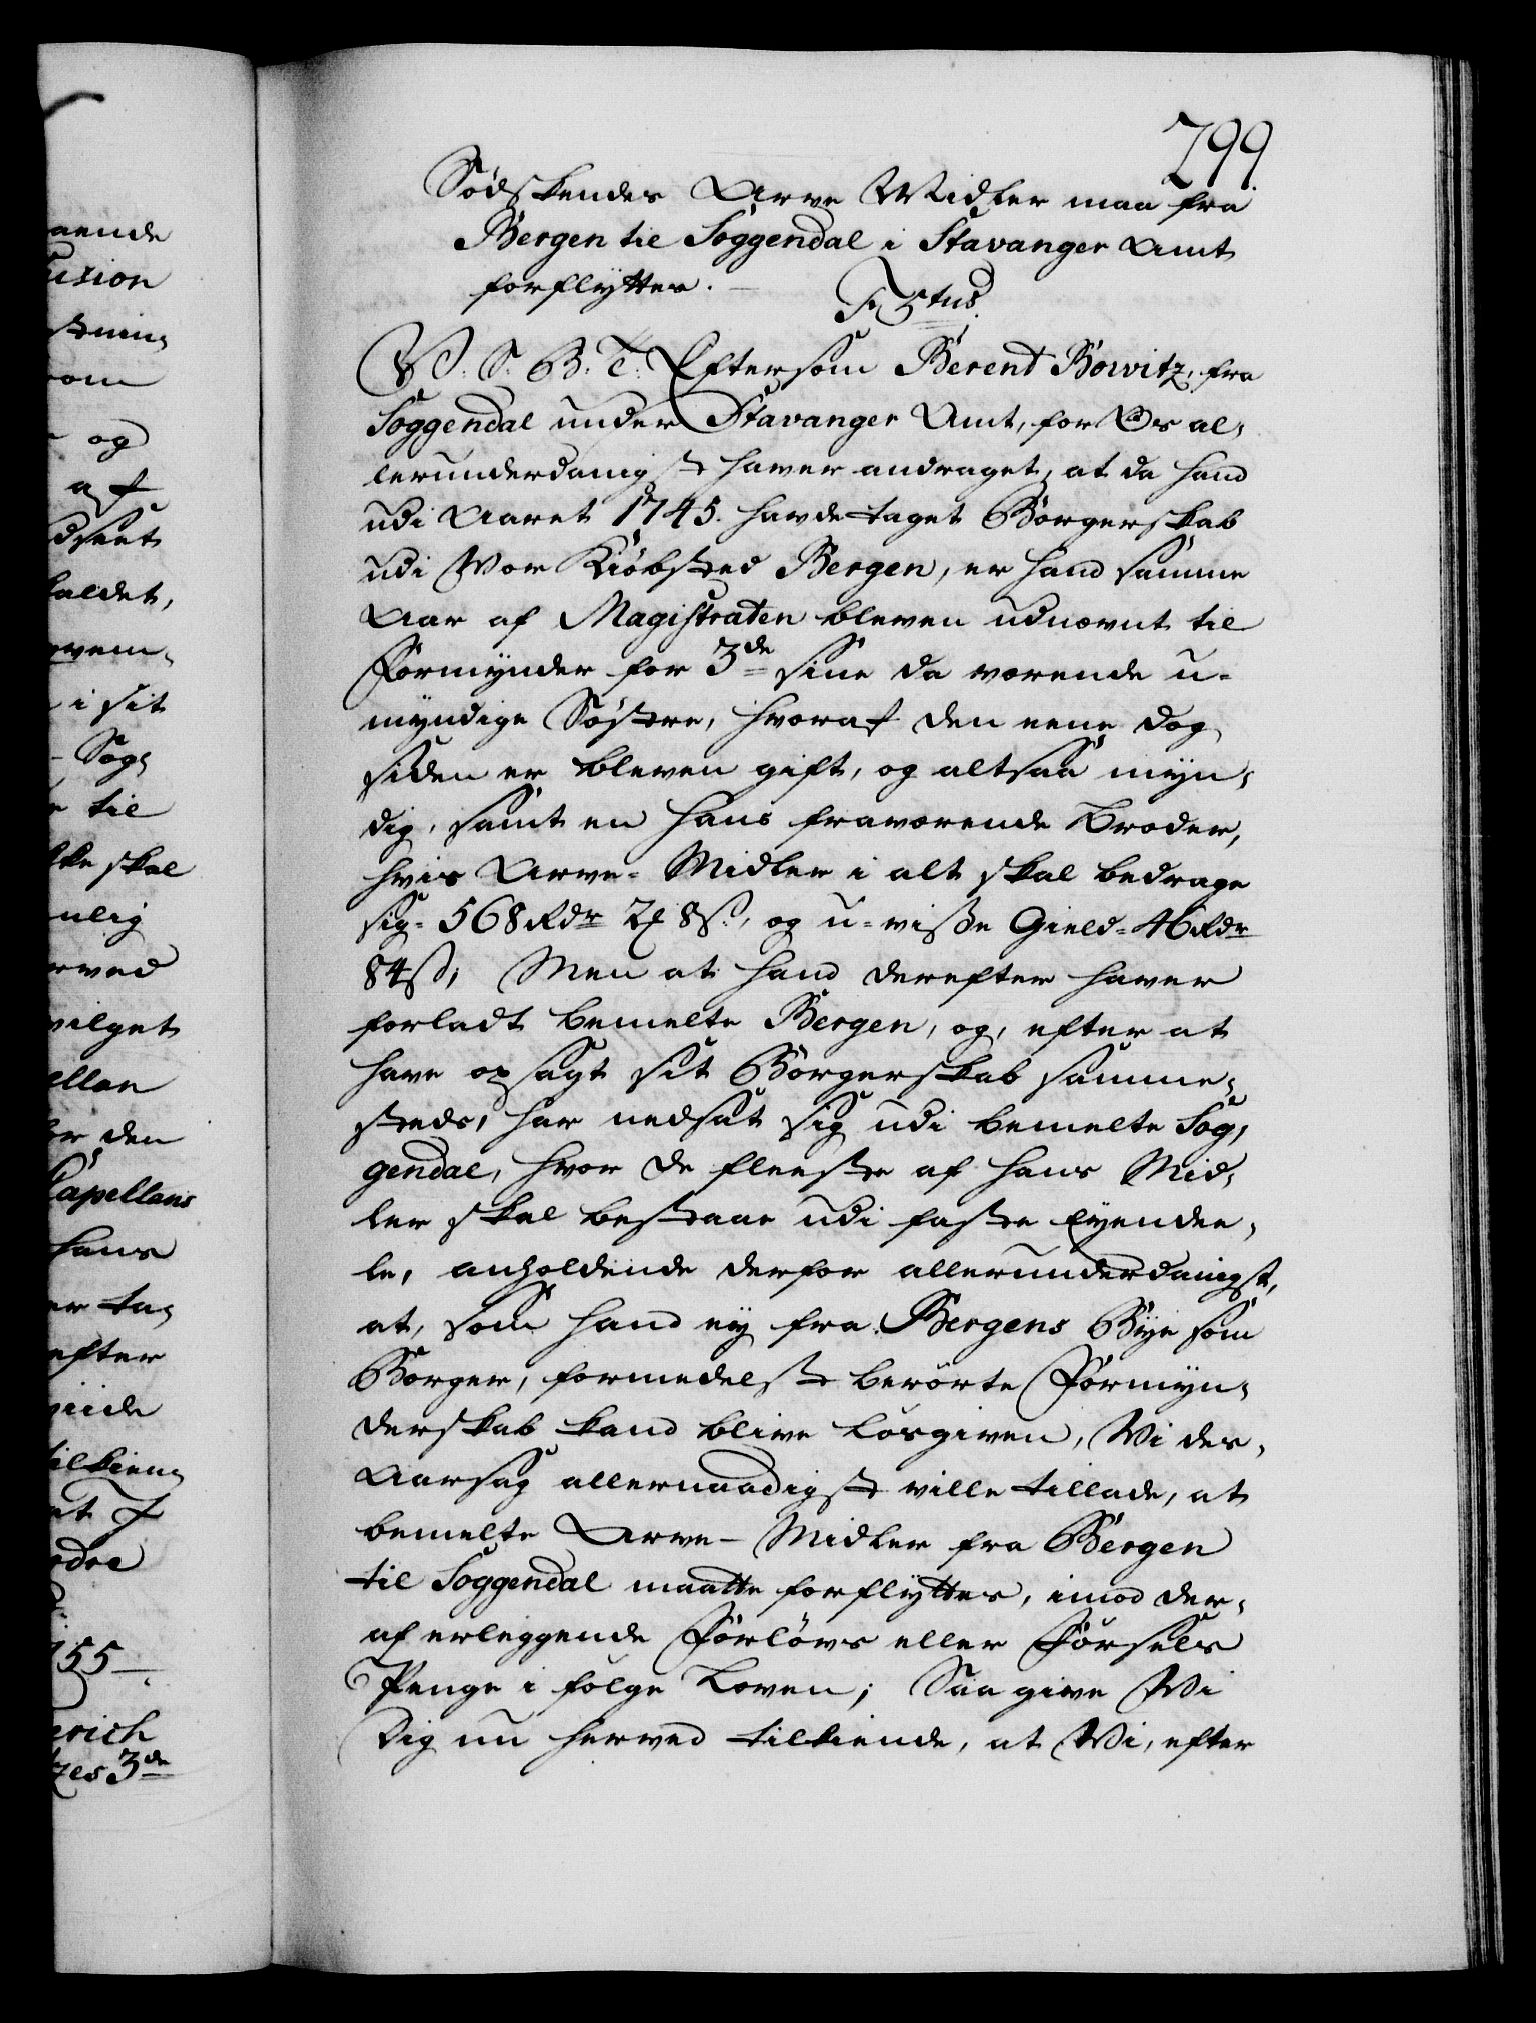 799
Sødskendes Arve Midler maa fra
Bergen til Soggendal i Stavanger Amt
forflyttes. —
F 5tus.
V. S. G. T. Eftersom Berent Bowitz, fra
Soggendal under Stavanger Amt, for Os al-
lerunderdanigst haver andraget, at da hand
udi Aaret 1745. havde taget Borgerskab
udi Vor Kiöbsted Bergen, er hand samme
Aar af Magistraten bleven udnævnt til
Formynder for 3de sine da værende u-
myndige Søstre, hvoraf den eene dog
siden er bleven gift, og altsaa myn-
dig, samt en hans fraværende Broder,
hvis Arve-Midler i alt skal bedrage
sig- 568 Rdr 2 ℳ 8 ß., og u-visse Gield- 46 Rdr
84 ß; Men at hand derefter haver
forladt bemelte Bergen, og, efter at
have opsagt sit Borgerskab samme-
steds, har nedsat sig udi bemelte Sog-
gendal, hvor de fleeste af hans Mid-
ler skal bestaae udi faste Eyendee-
le, anholdende derfor allerunderdanigst,
at, som hand ey fra Bergens Bye som
Borger, formedelst berørte Formyn-
derskab kand blive løsgiven, Vi des-
Aarsag allernaadigst ville tillade, at
bemelte Arve-Midler fra Bergen
til Soggendal maatte forflyttes, imod der-
af erleggende Forlovs eller Førsels
Penge i følge Loven; Saa give Vi
Dig nu herved tilkiende, at Vi, efter